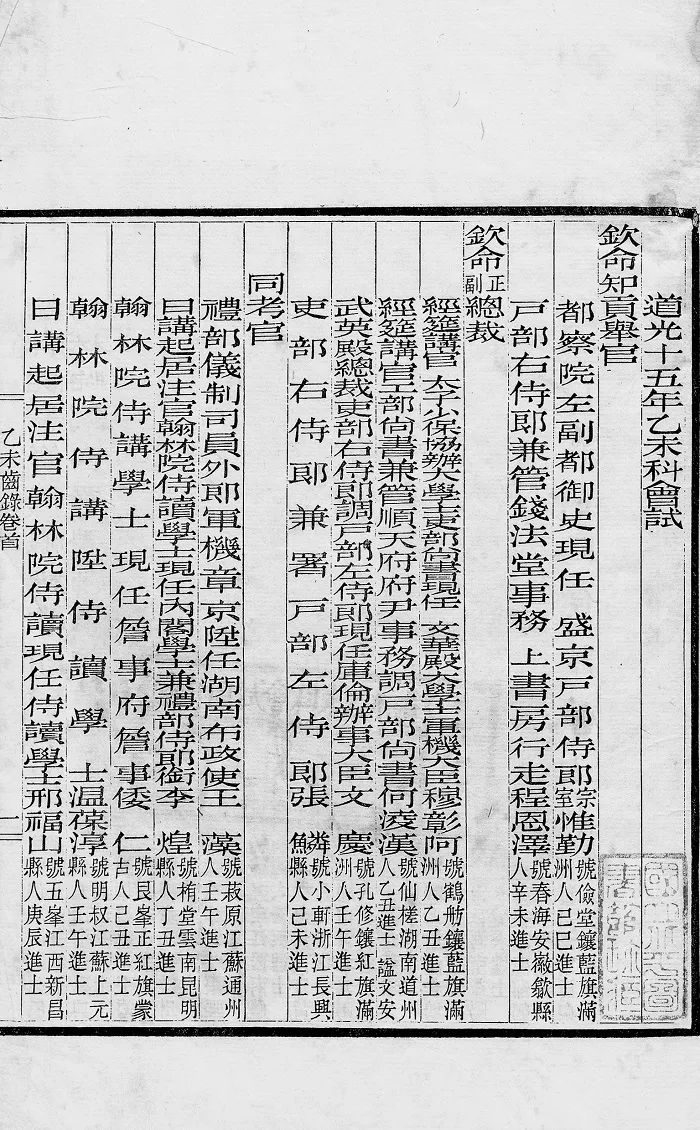 道光十五年乙未科會試
欽命知貢舉官
都察院左副都御史現任 盛京戸部侍郎宗室惟勤號儉堂鑲藍旗滿洲人己巳進士
戸部右侍郎兼管錢法堂事務 上書房行走程恩澤號春海安徽歙縣人辛未進士
欽命正副總裁
經筵講官 太子少保協辦大學士吏部尙書現任 文華殿大學士軍機大臣穆彰阿號鶴舫鑲藍旗滿洲人乙丑進士
經筵講官工部尙書兼管順天府府尹事務調戸部尙書何淩漢號仙槎湖南道州人乙丑進士 諡文安
武英殿總裁吏部右侍郎調戸部左侍郎現任庫倫辦事大臣文 慶號孔修鑲紅旗滿洲人壬午進士
吏部右侍郎兼署戸部左侍郎張 鱗號小軒浙江長興縣人己未進士
同考官
禮部儀制司員外郎軍機章京陞任湖南布政使王 藻號菽原江蘇通州人壬午進士
日講起居注官翰林院侍讀學士現任內閣學士兼禮部侍郎銜李 煌號栯堂雲南昆明縣人丁丑進士
翰林院侍講學士現任詹事府詹事倭 仁號艮峯正紅旗蒙古人己丑進士
翰林院侍講陞侍讀學士溫葆淳號明叔江蘇上元縣人壬午進士
日講起居注官翰林院侍讀現任侍讀學士邢福山號五峯江西新昌縣人庚辰進士
乙未齒錄卷首
一